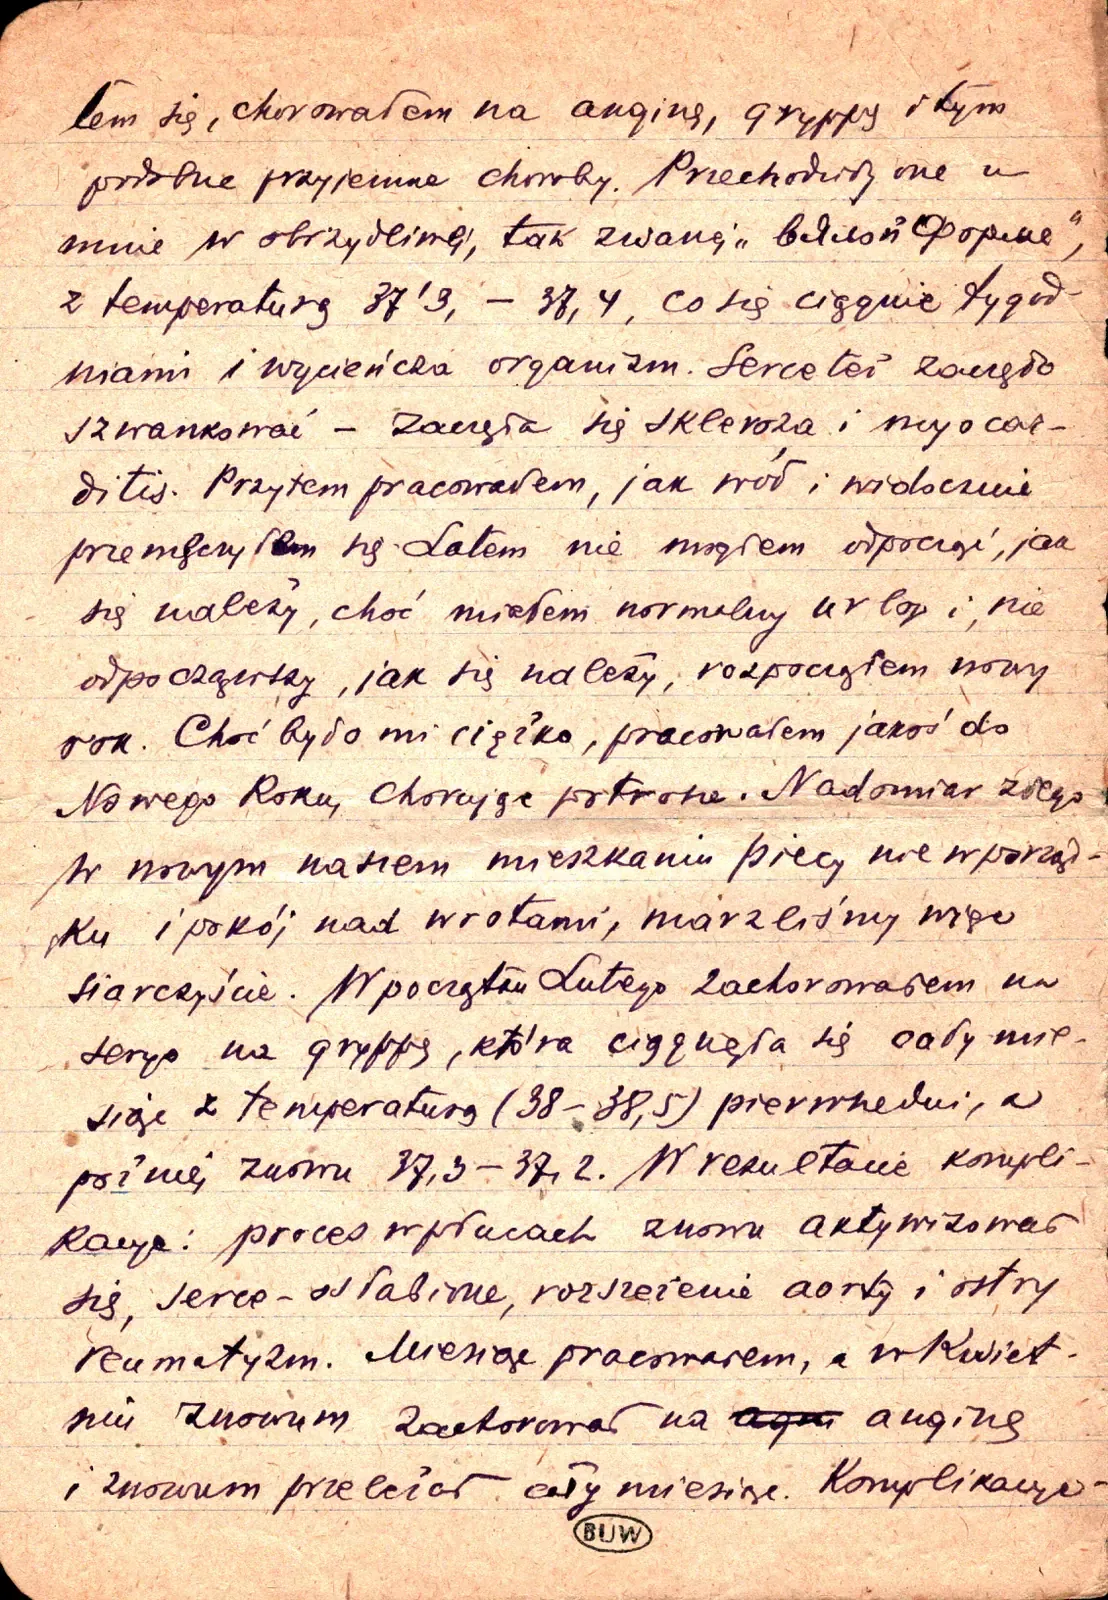 łem się, chorowałem na anginę, gryppę i tym
podobne przyjemne choroby. Przechodziły one u
mnie w obrzydliwéj, tak zwanéj „вялой форме",
z temperaturą 37'3, – 37,4, co się ciągnie tygod-
niami i wycieńcza organizm. Serce też zaczęło
szwankować – zaczęła się skleroza i myocar-
ditis. Przytem pracowałem, jak wół i widocznie
przemęczyłem się. Latem nie mogłem odpocząć, jak
się należy, choć miałem normalny urlop i, nie
odpocząwszy, jak się należy, rozpocząłem nowy
rok. Choć było mi ciężko, pracowałem jakoś do
Nowego Roku, chorując potrosze. Nadomiar złego
w nowym naszem mieszkaniu piecy nie w porząd-
ku i pokój nad wrotami, marzliśmy więc
siarczyście. W początku Lutego zachorowałem na
seryo na gryppę, która ciągnęła się cały mie-
siąc z temperaturą (38 – 38,5) pierwsze dni, a
poźniéj znowu 37,3 – 37,2. W rezultacie kompli-
kacye: proces w płucach znowu aktywizował
się, serce – osłabione, rozszeżenie aorty i ostry
reumatyzm. Miesiąc pracowałem, a w Kwiet-
niu znowum zachorował na agni anginę
i znowum przeleżał cały miesiąc. Komplikacye –
BUW